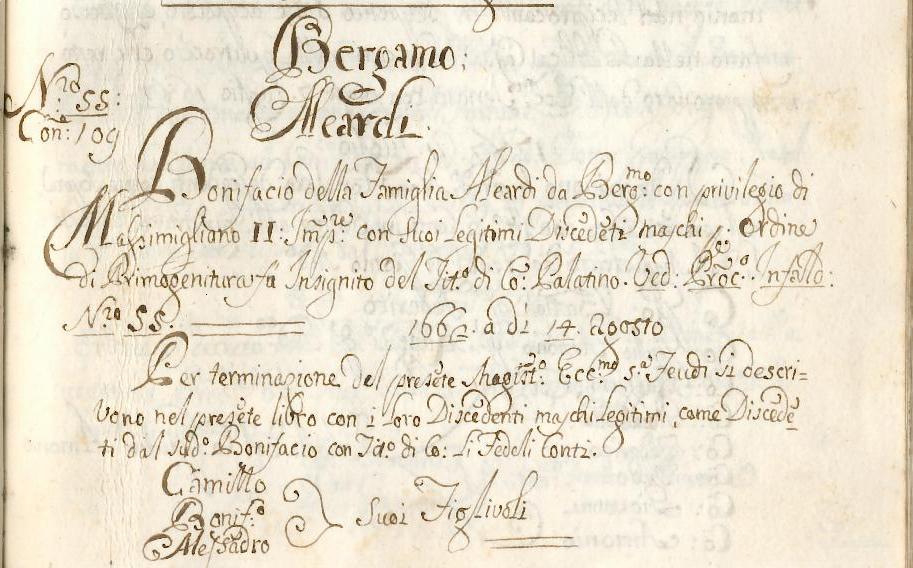 Bergamo:
Aleardi.
N.ro 55:
Con: 109
Bonifacio della Famiglia Aleardi da Berg:mo con privilegio di
Massimigliano II: Imp.re con suoi legitimi Discedēti maschi p. Ordine
di Primogenitura fù Insignito del Tit.o di Co: Palatino. Ved: Proc.o
N.ro 55. 1662: a di 14. Agosto
Per terminazione del presēte Magist.o Ecc.mo s.a Feudi si descri=
vono nel presēte libro con i loro Discedenti maschi legitimi, come Discedē
ti dal sud.o Bonifacio con Tit.o di Co: li Fedeli Conti.
Camillo
Bonif.o } Suoi Figlivoli
Alessādro